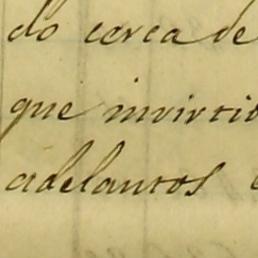 do cerca de
que invirtio
adelantos